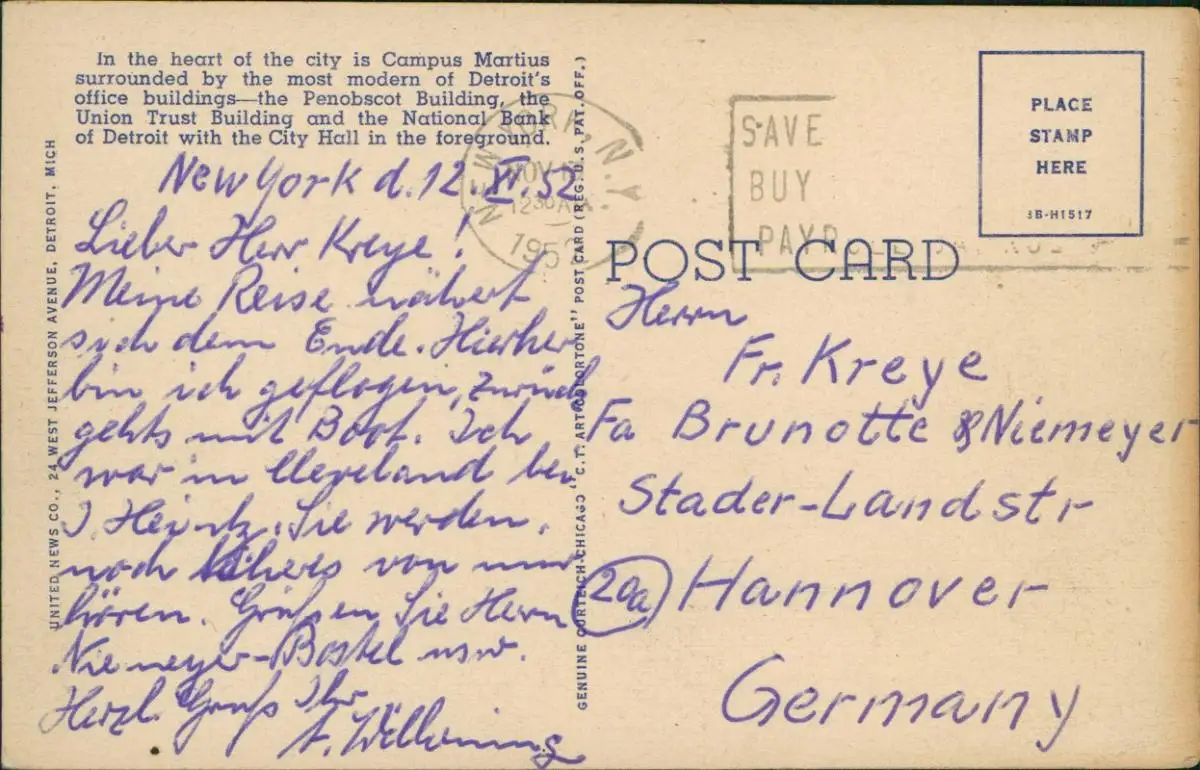 In the heart of the city is Campus Martius
surrounded by the most modern of Detroit's
office buildings—the Penobscot Building, the
Union Trust Building and the National Bank
of Detroit with the City Hall in the foreground.
New York d. 12. XI. 52
Lieber Herr Kreye!
Meine Reise nähert
sich dem Ende. Hierher
bin ich geflogen, zurück
gehts mit Boot. Ich
war in Cleveland bei
J. Heintz. Sie werden
noch näheres von mir
hören. Grüßen Sie Herrn
Niemeyer-Bostel usw.
Herzl. Gruß Ihr
UNITED NEWS CO., 24 WEST JEFFERSON AVENUE, DETROIT, MICH
GENUINE CURTEICH-CHICAGO "C.T. ART-COLORTONE" POST CARD (REG. U.S. PAT. OFF.)
NEW YORK, N.Y.
NOV
1230 AM
195
SAVE
BUY
PLACE
STAMP
HERE
3B-H1517
POST CARD
Herrn
Fr. Kreye
Fa Brunotte & Niemeyer
Stader-Landstr
20a Hannover
Germany